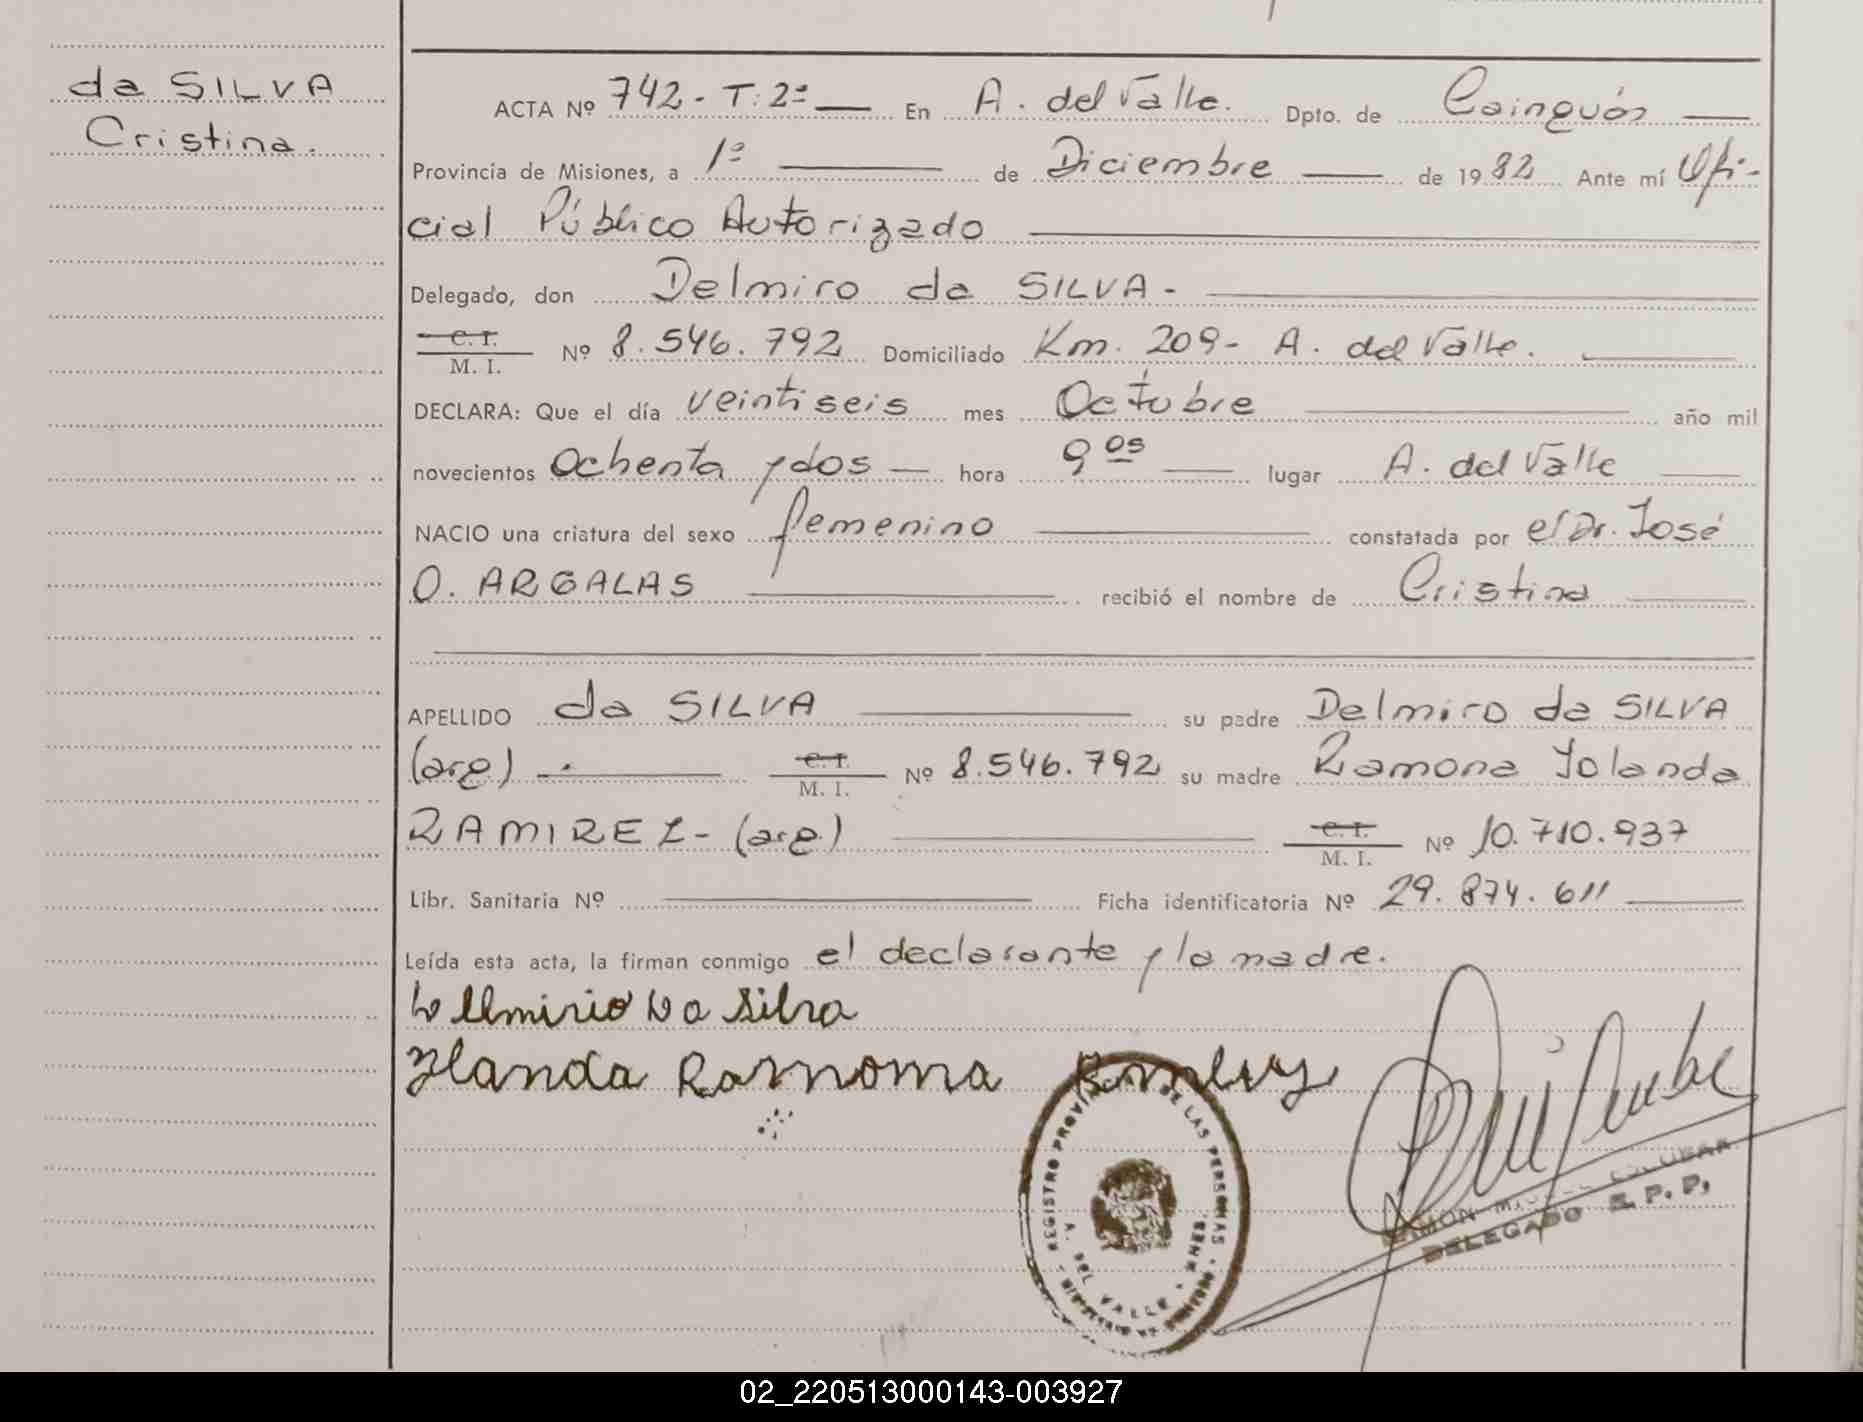 da SILVA
Cristina.
ACTA Nº 742- T: 2º — En A. del Valle. Dpto. de Cainguás —
Provincia de Misiones, a 1º — de Diciembre — de 1982 Ante mí Ofi-
cial Público Autorizado
Delegado, don Delmiro da SILVA.-
C. I.
M. I. Nº 8.546.792 Domiciliado Km. 209- A. del Valle.
DECLARA: Que el día veintiseis mes Octubre — año mil
novecientos Ochenta y dos — hora 9 os — lugar A. del Valle —
NACIO una criatura del sexo femenino — constatada por el Dr. José
O. ARGALAS — recibió el nombre de Cristina —
APELLIDO da SILVA — su padre Delmiro da SILVA
(arg) — C. I. M. I. Nº 8.546.792 su madre Ramona Yolanda
RAMIREZ- (arg.) — C. I. M. I. Nº 10.710.937
Libr. Sanitaria Nº — Ficha identificatoria Nº 29.874.611 —
Leída esta acta, la firman conmigo el declarante y la madre.
Da Silva
Ylanda Ramona
REGISTRO PROVINCIAL DE LAS PERSONAS
A. DEL VALLE - MNES.
RAMON MIGUEL ESCOBAR
DELEGADO R. P. P.
02_220513000143-003927